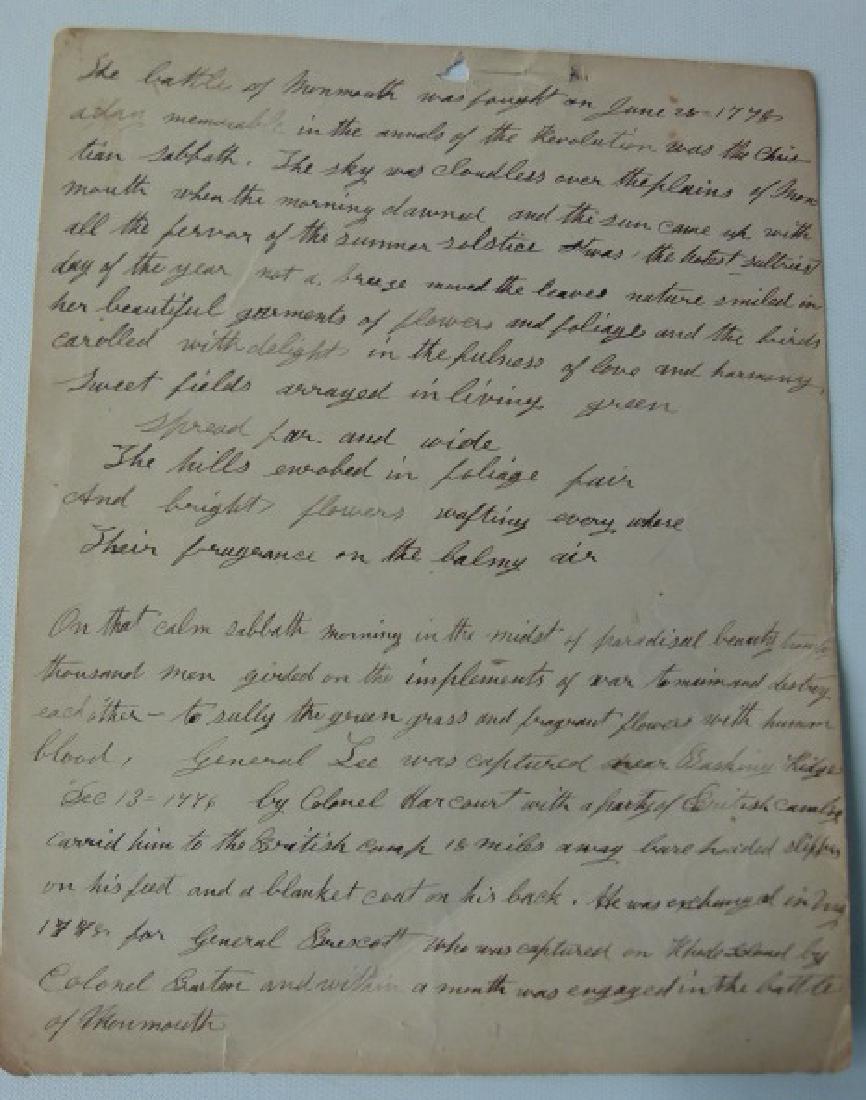 The battle of Monmouth was fought on June 28-1778
a day memorable in the annals of the Revolution was the Chris
tian Sabbath. The sky was cloudless over the plains of Mon
mouth when the morning dawned and the sun came up with
all the fervor of the summer solstice twas the hotest sultriest
day of the year not a breeze moved the leaves nature smiled in
her beautiful garments of flowers and foliage and the birds
carolled with delight in the fulness of love and harmony,
Sweet fields arrayed in living green
spread far and wide
The hills enrobed in foliage fair
And bright flowers wafting every where
Their fragrance on the balmy air
On that calm sabbath morning in the midst of paradisal beauty
thousand men girded on the implements of war to maim and destroy
each other - to sully the green grass and fragrant flowers with human
blood, General Lee was captured near Basking Ridge
Dec 13-1776 by Colonel Harcourt with a party of British cavalry
carrid him to the British camp 18 miles away bare headed slippers
on his feet and a blanket coat on his back. He was exchanged in
1778 for General Prescott who was captured on Rhode Island by
Colonel Barton and within a month was engaged in the battle
of Monmouth